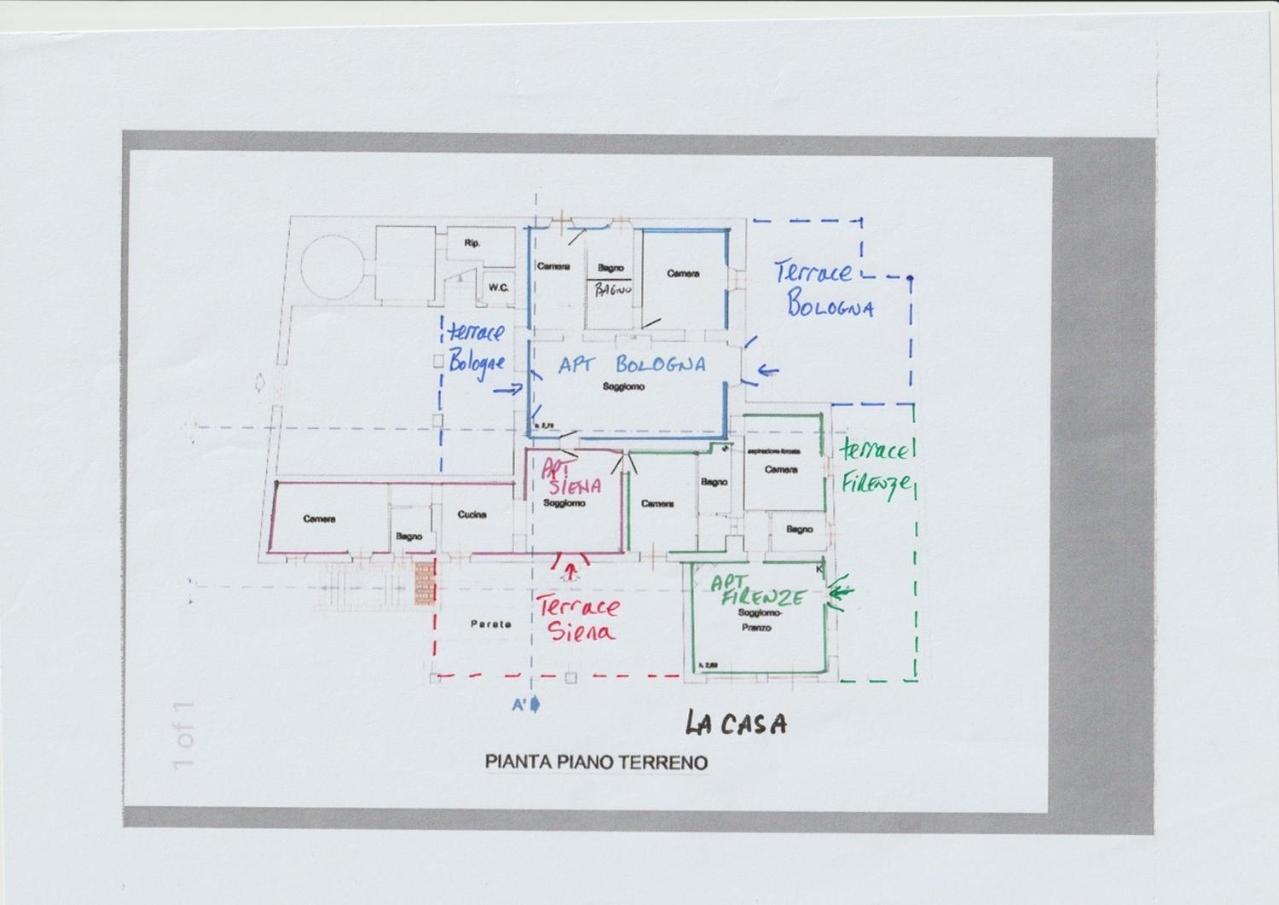 Rip.
W.C.
Camera
Bagno
BAGNO
Camera
Terrace
BOLOGNA
terrace
Bologne
APT BOLOGNA
Soggiorno
h. 2,70
APT
SIENA
Soggiorno
Camera
Bagno
Cucina
Camera
Bagno
aspirazione forzata
Camera
Bagno
terrace
FIRENZE
APT
FIRENZE
Soggiorno-
Pranzo
K
Terrace
Siena
A'
LA CASA
PIANTA PIANO TERRENO
1 of 1